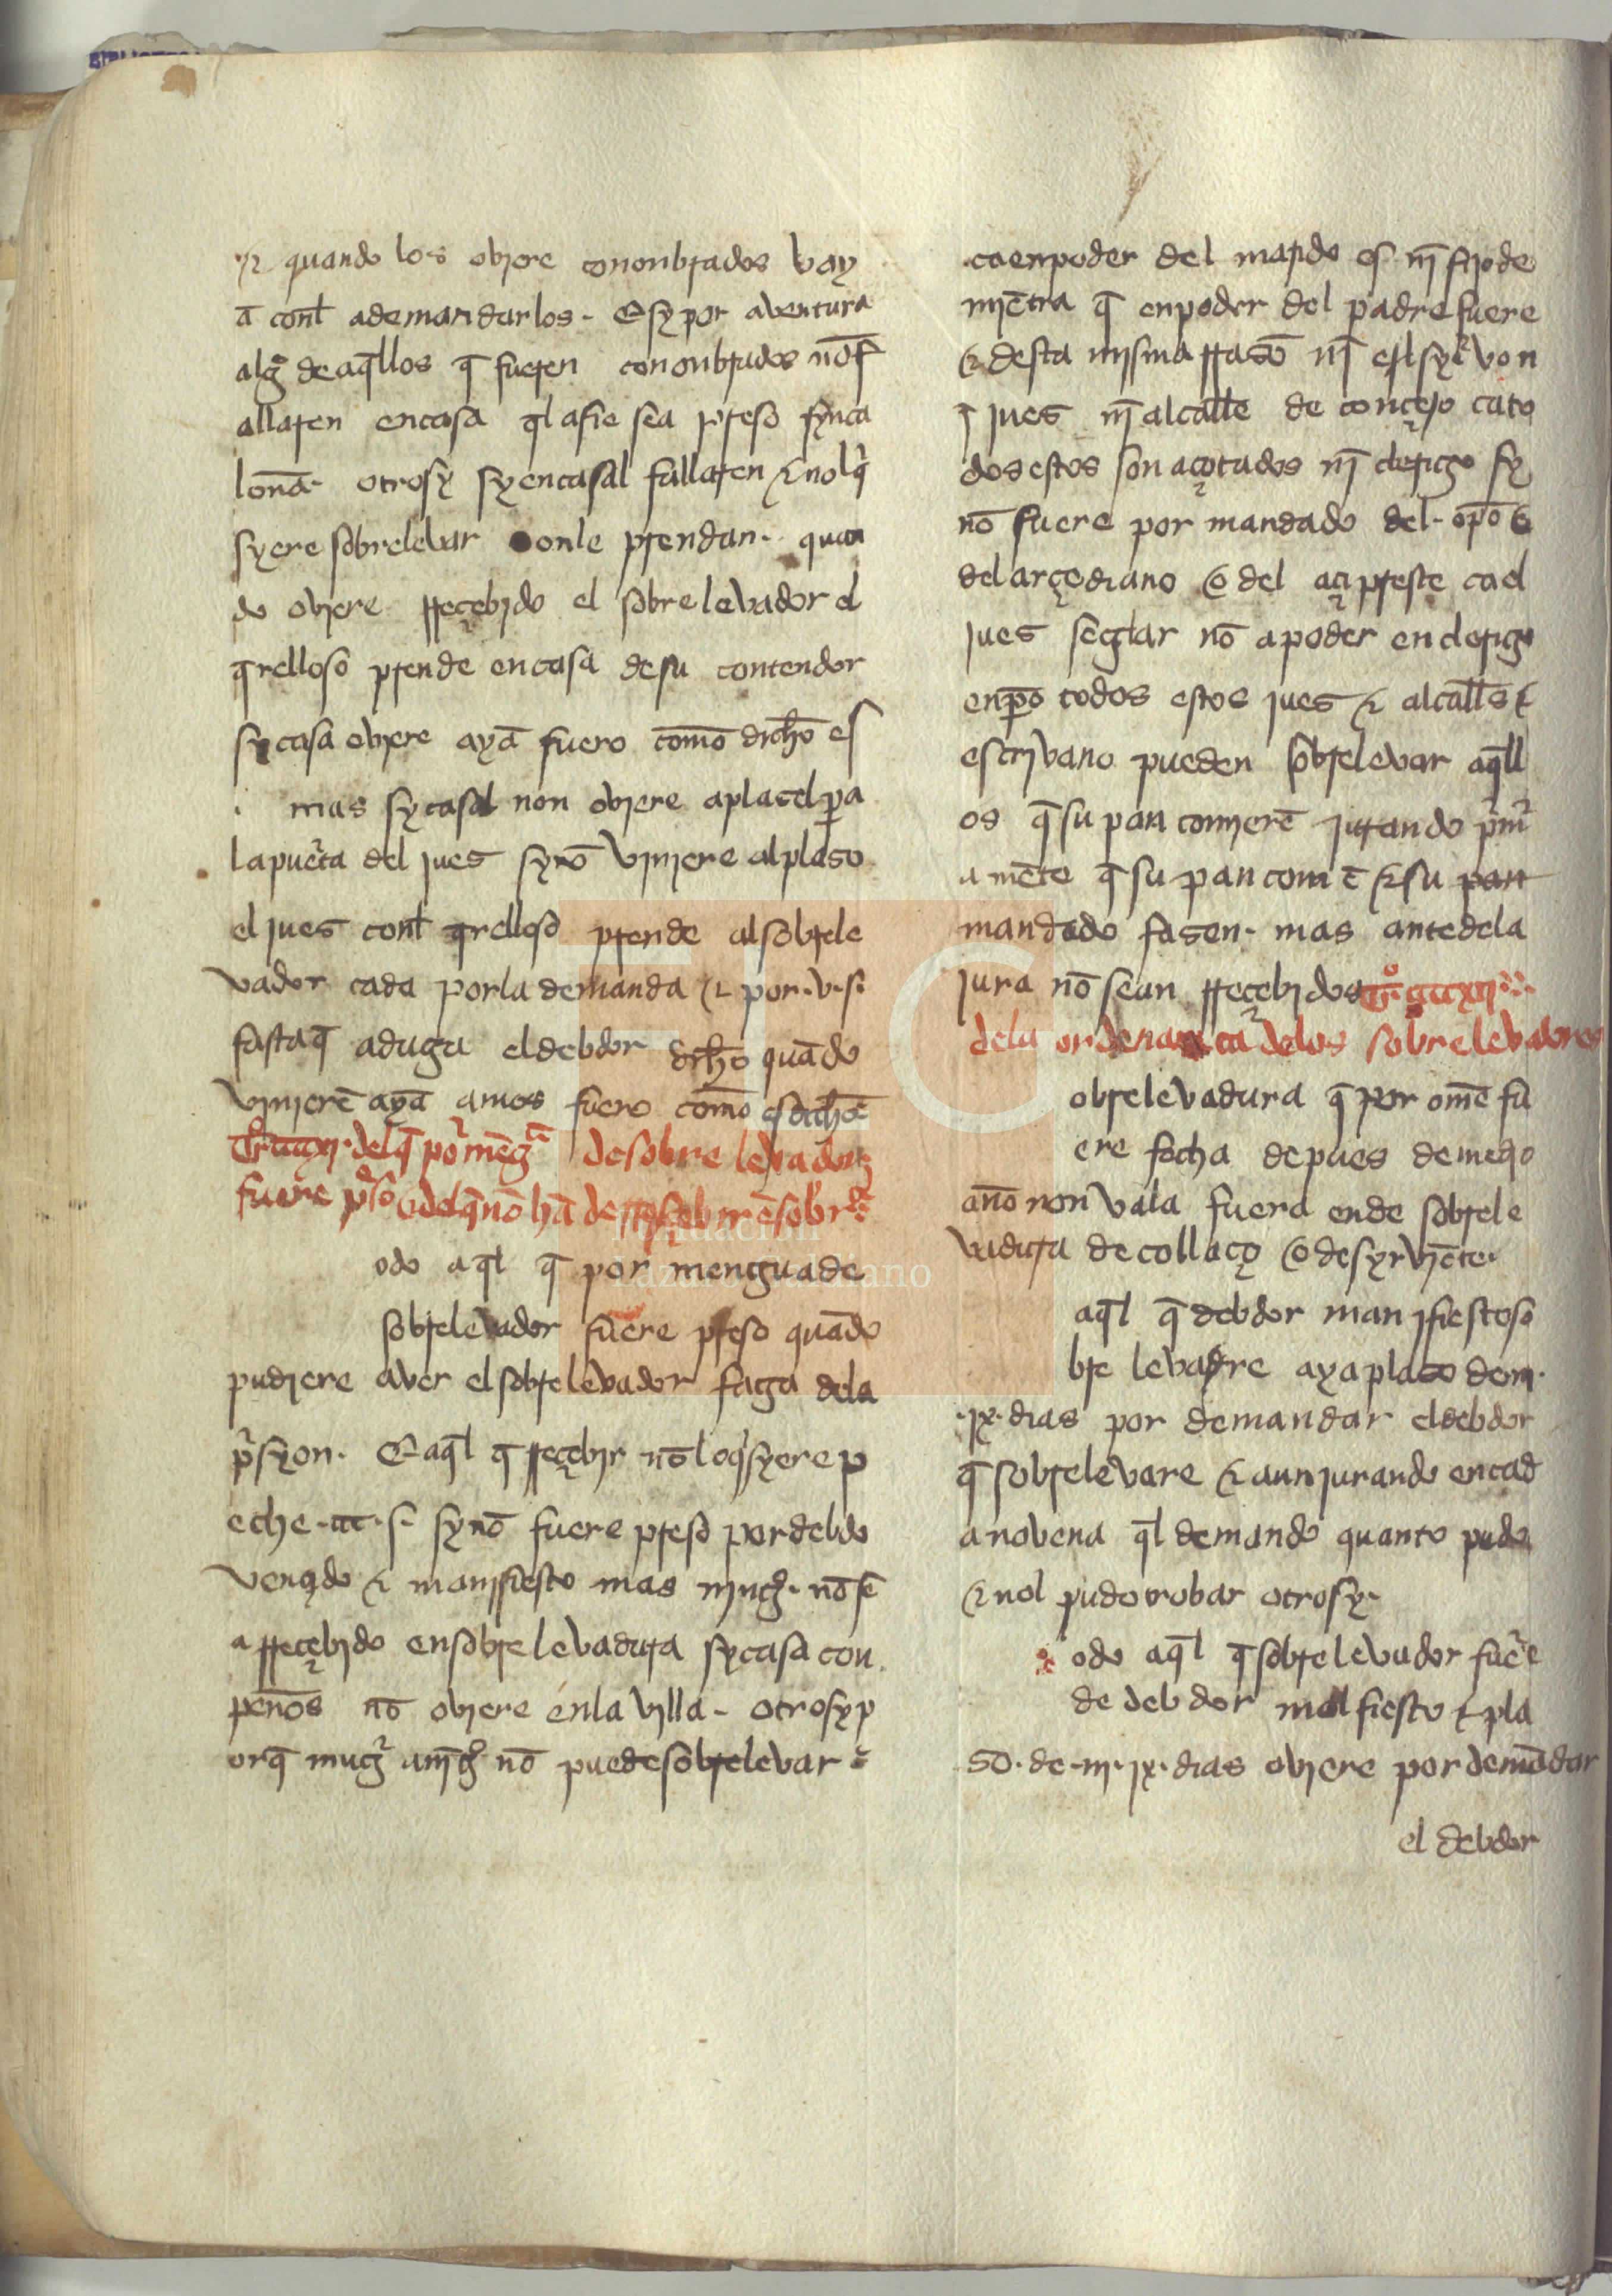 ⁊ quando los obiere cononbrados vay
ã conl ademandarlos. E sy por aventura
alg̃ de aq̃llos q̃ fueren conombrados nõ f
allaren encasa ql afie sea preso fynca
lonã. otrosy sy encasal fallaren ⁊ nol q̃
syere sobrelevar onle prendan. quan
do obiere rreçebido el sobrelevador el
q̃relloso prende encasa desu contendor
sy casa obiere ayã fuero comõ dicho es
mas sy casal non obiere aplasel pa
la puerta del jues sy nõ viniere al plaso
el jues conl q̃relloso prende al sobrele
vador cada por la demanda ⁊ por .v. s.
fasta q̃ aduga el debdor dicho quãdo
vinierẽ ayã amos fuero comõ es dicho
del q̃ por mẽg de sobre levador
fuere p̃so o del q̃ nõ hã de rreçebir ẽ sobr
odo aq̃l q̃ por mengua de
sobrelevador fuere preso quãdo
pudiere aver el sobrelevador faga dela
p̃syon. E aq̃l q̃ rreçebir nõ lo q̃syere p
eche .ccc. s. sy nõ fuere preso por debdo
vençido ⁊ manifiesto mas ning̃. nõ se
a rreçebido en sobrelevadura sy casa con
penõs nõ obiere en la villa. otrosy p
orq̃ mug̃ a ning̃ nõ puede sobrelevar
ca en poder del marido es nĩ fijo de
miẽtra q̃ en poder del padre fuere
⁊ desta misma rrasõ nĩ es el syrvon
jues nĩ alcalle de conçejo ca to
dos estos son açotados nĩ clerigo sy
nõ fuere por mandado del. opõ o
del arçediano o del açipreste ca el
jues seglar nõ a poder en clerigo
enpo todos estos jues ⁊ alcalls ⁊
escrivano pueden sobrelevar aq̃ll
os q̃ su pan comierẽ jurando prim
a mẽte q̃ su pan comẽ ⁊ su pan
mandado fasen. mas ante dela
jura nõ sean rreçebidos
dela ordenança delos sobrelevadores
obrelevadura q̃ por omẽ fu
ere fecha depues de meџo
año non vala fuera ende sobrele
vadura de collaço o de syrviẽte.
aq̃l q̃ debdor manifiesto so
bre levare aya plaso de .iii.
.ix. dias por demandar el debdor
q̃ sobrelevare ⁊ aun jurando en cad
a novena q̃l demando quanto pudo
⁊ nol pudo trobar otrosy.
odo aq̃l q̃ sobrelevador fuere
de debdor malfiesto ⁊ pla
so. de .iii. ix. dias obiere por demãdar
el debdor